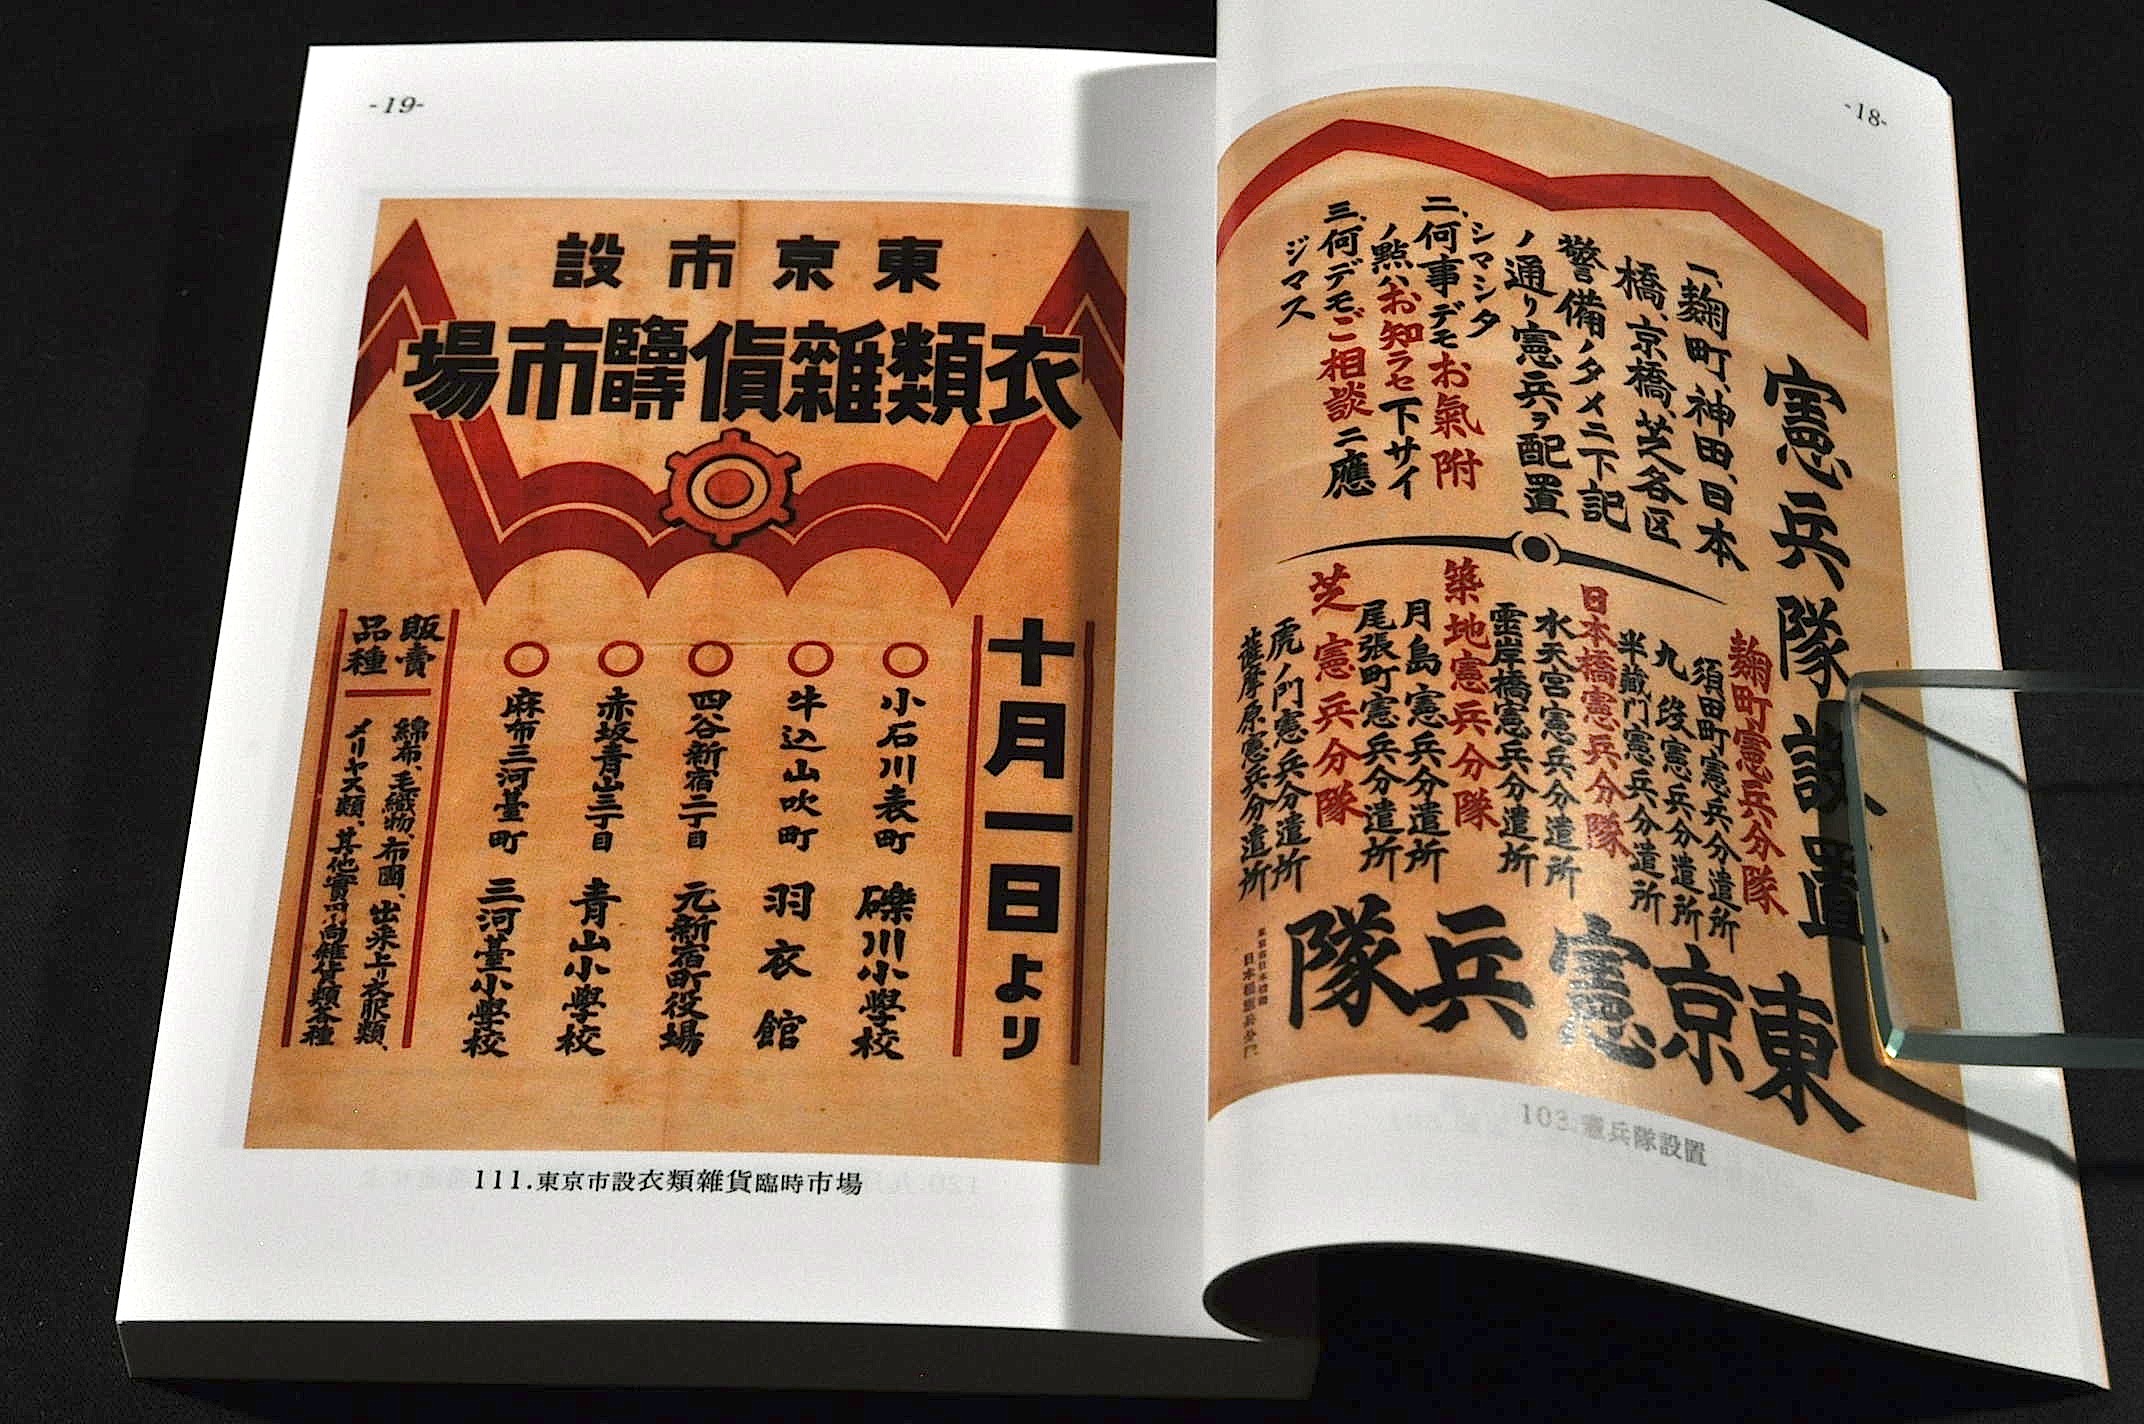 -18-
憲兵隊設置
一、麹町、神田、日本
橋、京橋、芝各区
警備ノタメニ下記
ノ通り憲兵ヲ配置
シマシタ
二、何事デモお氣附
ノ點ハお知ラセ下サイ
三、何デモご相談ニ應
ジマス
麹町憲兵分隊
須田町憲兵分遣所
九段憲兵分遣所
半蔵門憲兵分遣所
日本橋憲兵分隊
水天宮憲兵分遣所
霊岸橋憲兵分遣所
築地憲兵分隊
月島憲兵分遣所
尾張町憲兵分遣所
芝憲兵分隊
虎ノ門憲兵分遣所
薩摩原憲兵分遣所
東京憲兵隊
103.憲兵隊設置
-19-
東京市設
衣類雜貨臨時市場
十月一日より
○小石川表町 礫川小學校
○牛込山吹町 羽衣館
○四谷新宿二丁目 元新宿町役場
○赤坂青山三丁目 青山小學校
○麻布三河臺町 三河臺小學校
販賣
品種
綿布、毛織物、布團、出来上り衣服類、
メリヤス類、其他實用向雜貨類各種
111.東京市設衣類雜貨臨時市場